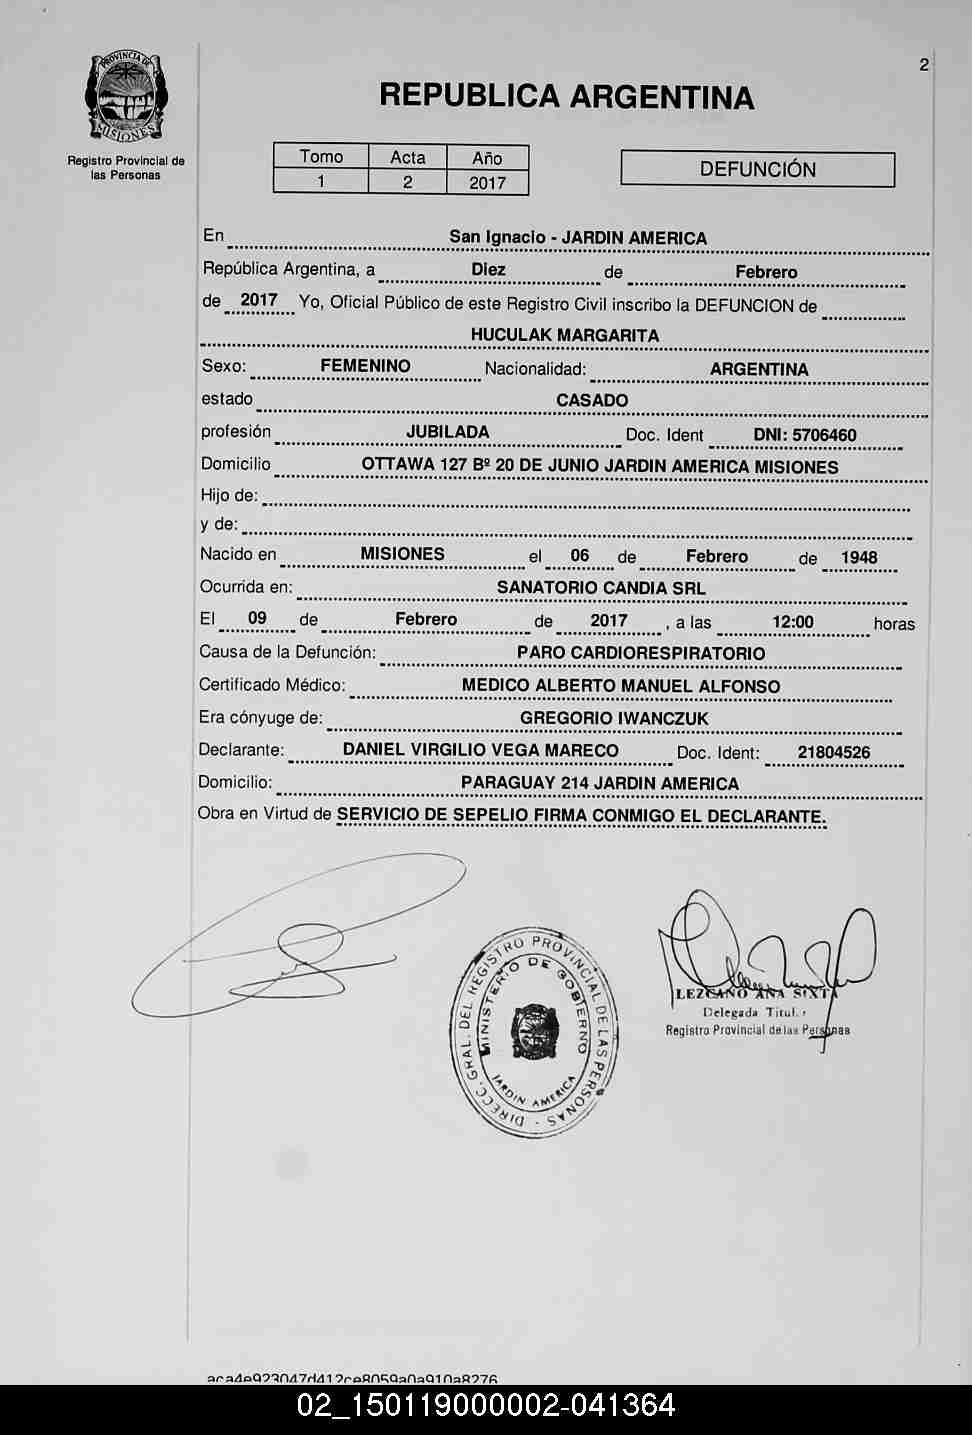 2
PROVINCIA DE
MISIONES
Registro Provincial de
las Personas
REPUBLICA ARGENTINA
Tomo Acta Año
1 2 2017
DEFUNCIÓN
En San Ignacio - JARDIN AMERICA
República Argentina, a Diez de Febrero
de 2017 Yo, Oficial Público de este Registro Civil inscribo la DEFUNCION de
HUCULAK MARGARITA
Sexo: FEMENINO Nacionalidad: ARGENTINA
estado CASADO
profesión JUBILADA Doc. Ident DNI: 5706460
Domicilio OTTAWA 127 Bº 20 DE JUNIO JARDIN AMERICA MISIONES
Hijo de:
y de:
Nacido en MISIONES el 06 de Febrero de 1948
Ocurrida en: SANATORIO CANDIA SRL
El 09 de Febrero de 2017 , a las 12:00 horas
Causa de la Defunción: PARO CARDIORESPIRATORIO
Certificado Médico: MEDICO ALBERTO MANUEL ALFONSO
Era cónyuge de: GREGORIO IWANCZUK
Declarante: DANIEL VIRGILIO VEGA MARECO Doc. Ident: 21804526
Domicilio: PARAGUAY 214 JARDIN AMERICA
Obra en Virtud de SERVICIO DE SEPELIO FIRMA CONMIGO EL DECLARANTE.
DIRECC. GRAL. DEL REGISTRO PROVINCIAL DE LAS PERSONAS -
MINISTERIO DE GOBIERNO
JARDIN AMERICA
LEZCANO ANA SIXTA
Delegada
Registro Provincial de las Personas
aca4e923047d412ce8059a0a910a8276
02_150119000002-041364